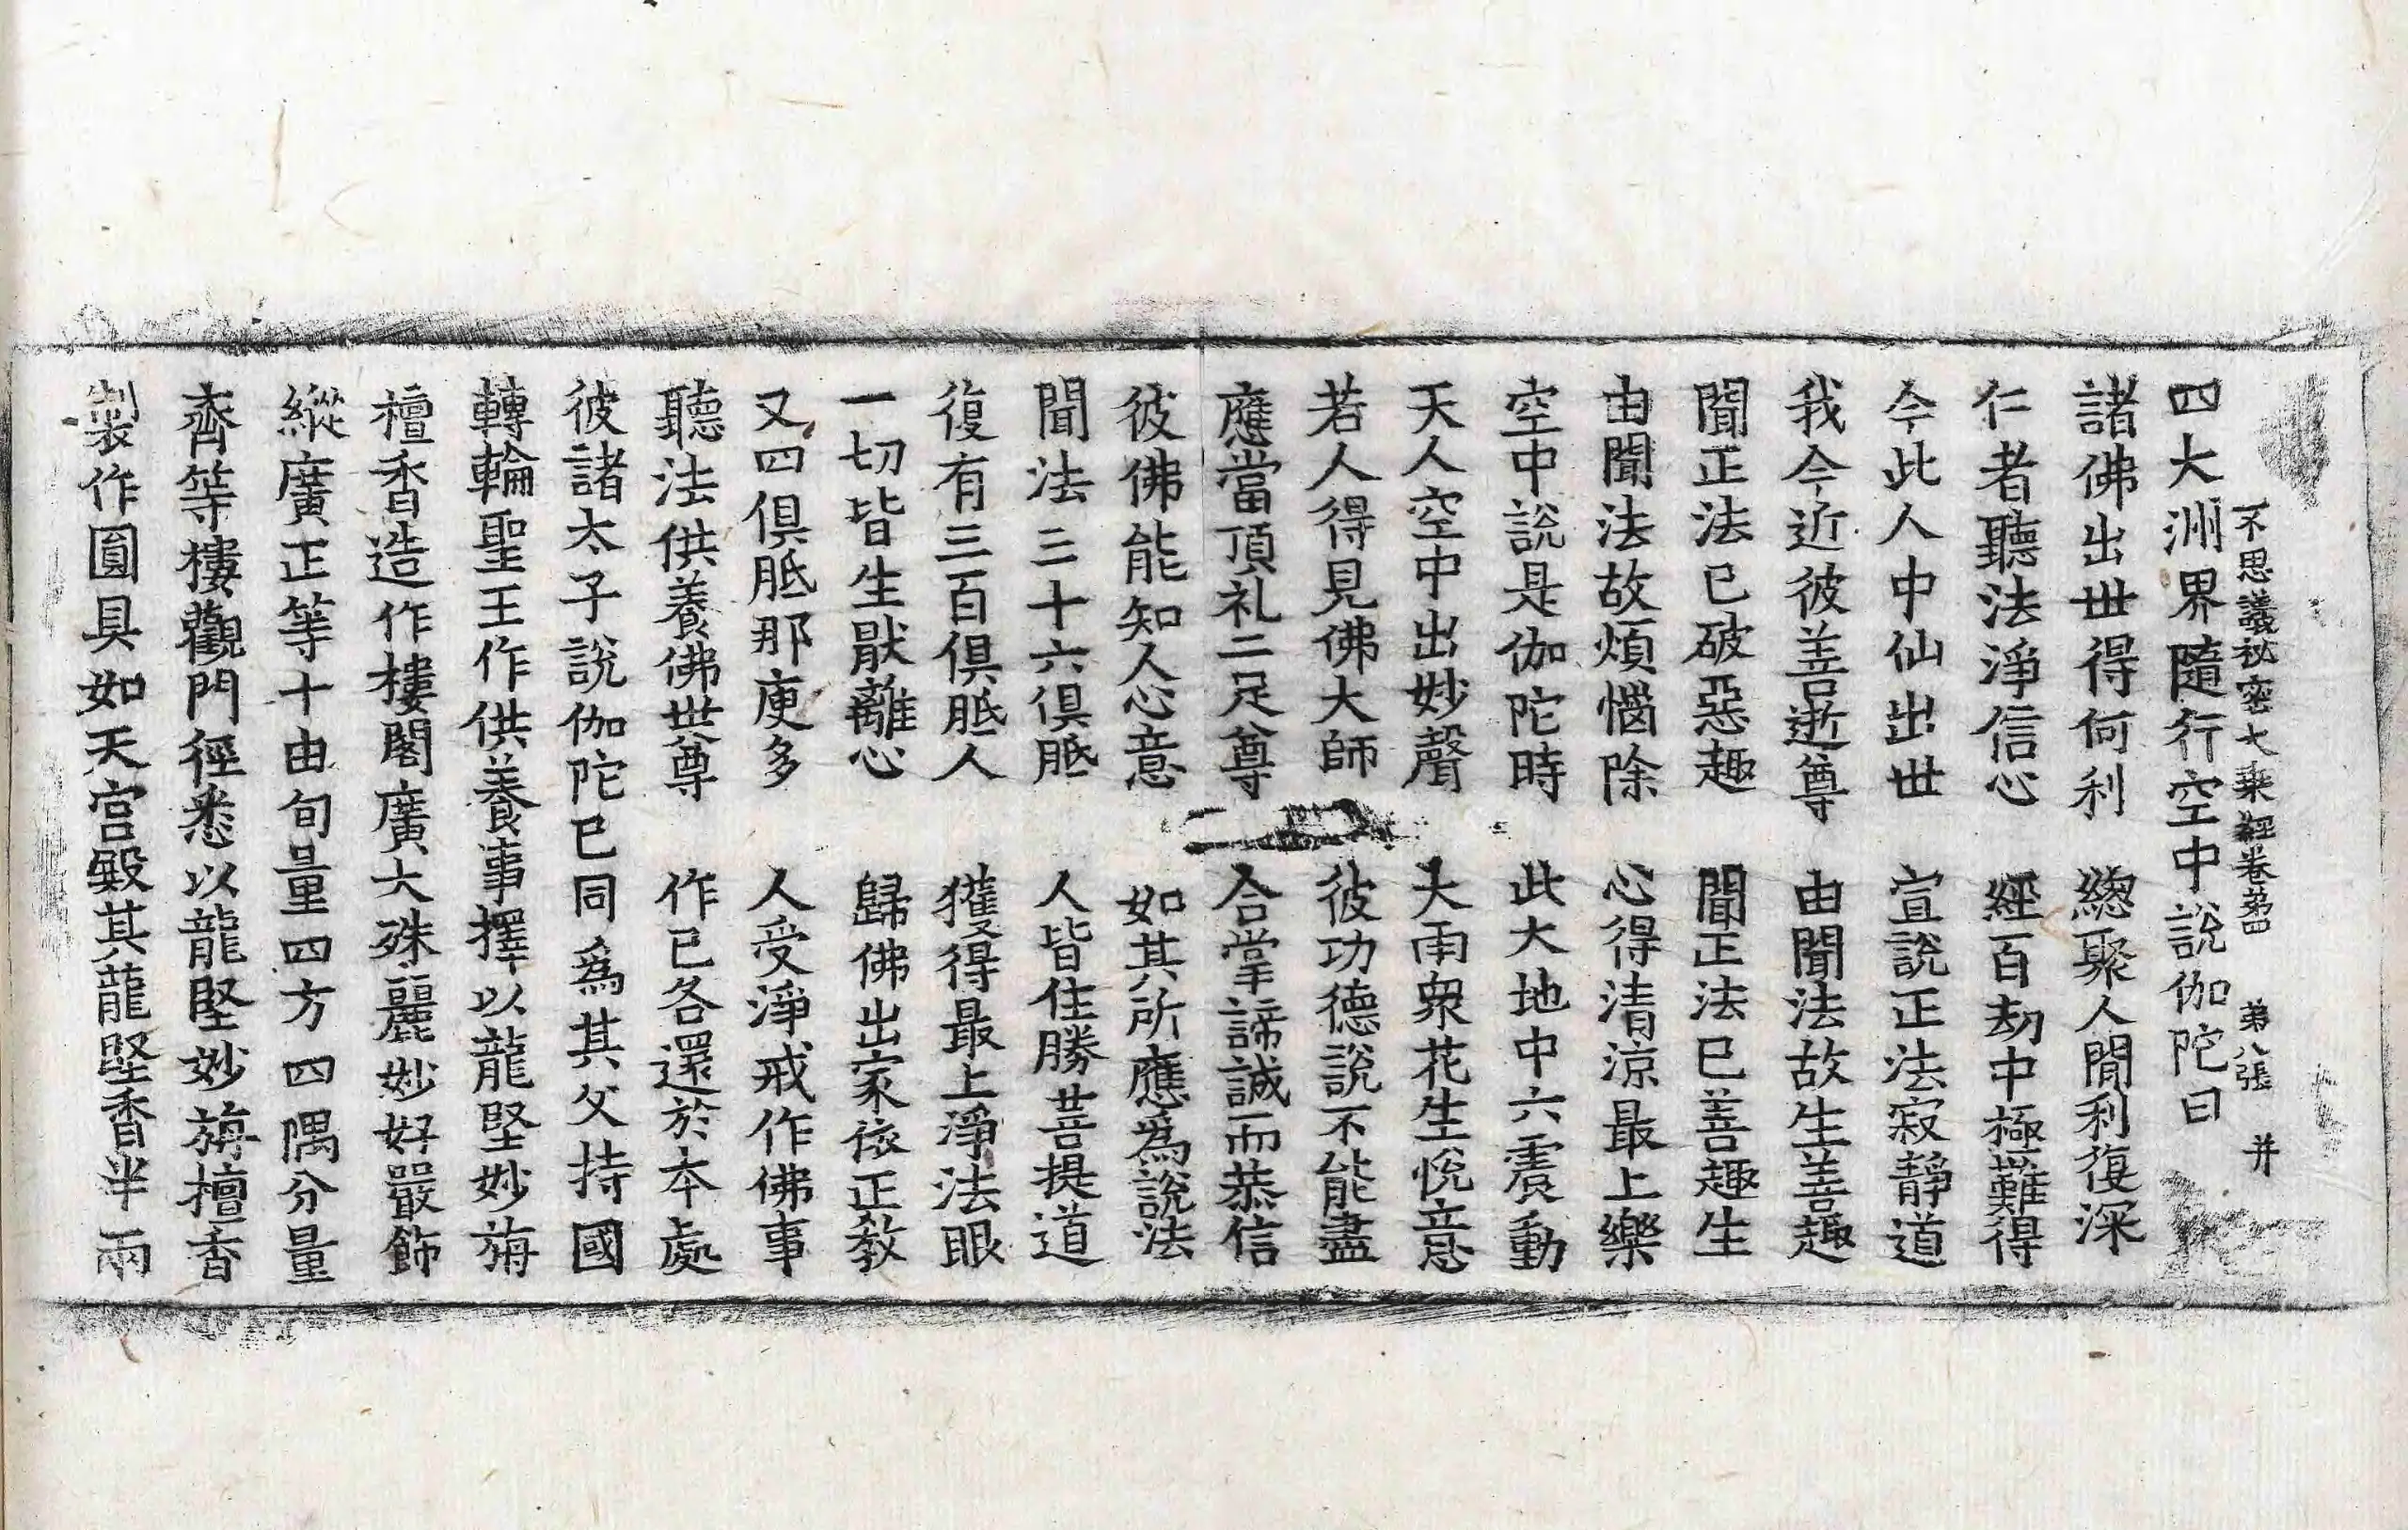 不思議秘密大乗經卷第四 第八張 并
四大洲界隨行空中說伽陀曰
諸佛出世得何利 緫聚人間利復深
仁者聽法淨信心 經百劫中極難得
今此人中仙出世 宣說正法寂靜道
我今近彼善逝尊 由聞法故生善趣
聞正法已破惡趣 聞正法已善趣生
由聞法故煩惱除 心得清涼最上樂
空中說是伽陀時 此大地中六震動
天人空中出妙聲 大雨衆花生悅意
若人得見佛大師 彼功德說不能盡
應當頂礼二足尊 合掌諦誠而恭信
彼佛能知人心意 如其所應爲說法
聞法三十六俱胝 人皆住勝菩提道
復有三百俱胝人 獲得最上淨法眼
一切皆生厭離心 歸佛出家依正教
又四俱胝那庾多 人受淨戒作佛事
聽法供養佛世尊 作已各還於本處
彼諸太子說伽陀已同爲其父持國
轉輪聖王作供養事擇以龍堅妙旃
檀香造作樓閣廣大殊麗妙好嚴飾
縱廣正等十由旬量四方四隅分量
齊等樓觀門徑悉以龍堅妙旃檀香
製作圓具如天宮殿其龍堅香半兩